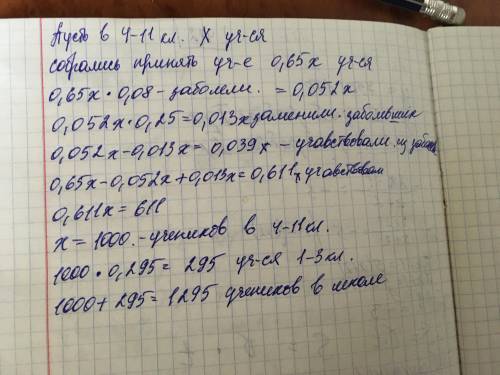 Пусть в 4-11 кл. X уч-ся
собрались принять уч-е 0,65x уч-ся
0,65x · 0,08 - заболели. = 0,052x
0,052x · 0,25 = 0,013x заменили.
0,052x - 0,013x = 0,039x - учавствовали из
0,65x - 0,052x + 0,013x = 0,611x учавствовали
0,611x = 611
x = 1000. - учеников в 4-11 кл.
1000 · 0,295 = 295 уч-ся 1-3 кл.
1000 + 295 = 1295 учеников в школе